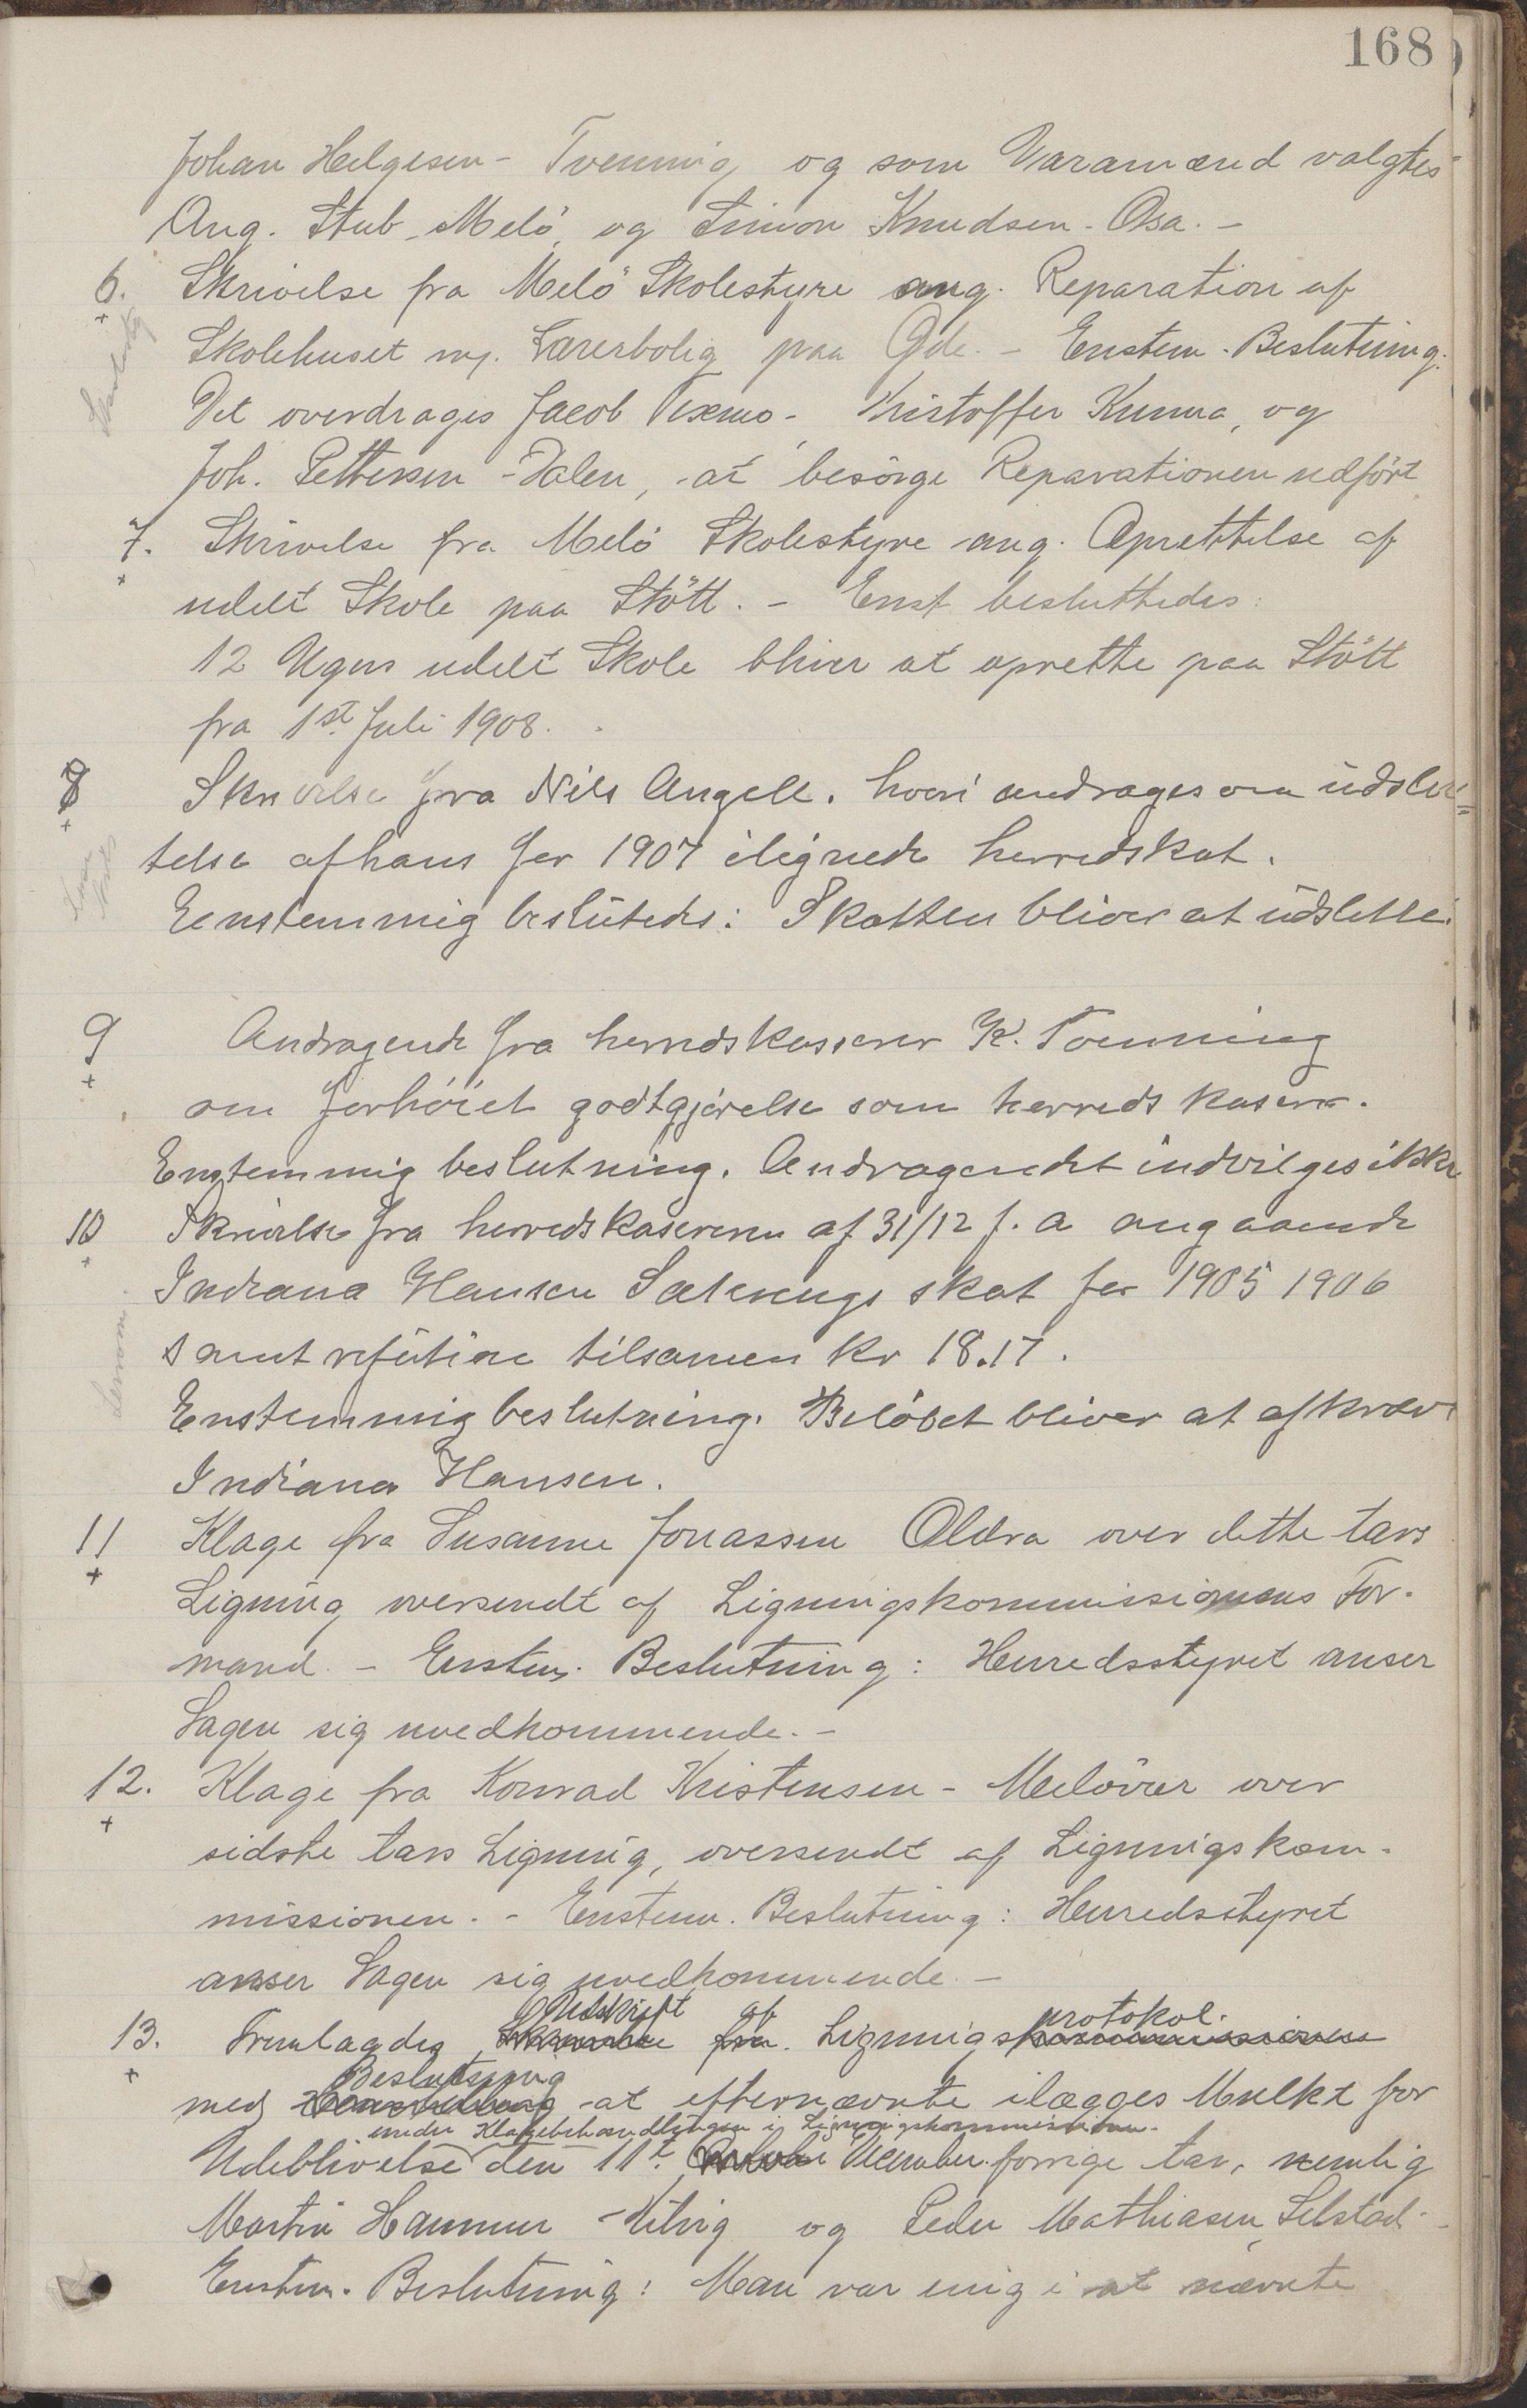 168
Johan Helgesen - Tvenning og som Varamænd valgtes
Aug. Stub - Melö, og Simon Knudsen - Osa. -
6. Skrivelse fra Melö Skolestyre ang. Reparation af
Skolehuset m/. Lærerbolig paa Gde. - Enstem. Beslutning.
Det overdrages Jacob Texmo - Kristoffer Kunna, og
Joh. Pettersen - Dalen, at besörge Reparationen udfört
7. Skrivelse fra Melö Skolestyre ang. Oprettelse af
udelt Skole paa Stött. - Enst besluttedes:
12 Ugers udelt Skole bliver at oprette paa Stött
fra 1st Juli 1908.
8 Skrivelse fra Nils Angell. hvori andrages om udslet=
telse af hans for 1907 ilignede herredskat.
Eenstemmig besluteds: Skatten bliver at udslette.
9 Andragende fra herredskasserer K. Tvenning
om forhöiet godtgjörelse som herreds kaserer.
Enstemmig beslutning. Andragendet indvilges ikke
10 Skrivelse fra herredskasereren af 31/12 f. a angaaende
Indiana Hansen Sætvengs skat for 1905 1906
samt refution tilsamen kr 18.17.
Enstemmig beslutning. Belöbet bliver at afkræve
Indiana Hansen.
11 Klage fra Susanne Jonassen Oldra over dette aars
Ligning oversendt af Ligningskommissionens For-
mand. - Enstem. Beslutning: Herredsstyret anser
Sagen sig uvedkommende. -
12. Klage fra Konrad Kristensen - Melövær over
sidste aars Ligning, oversendt af Ligningskom-
missionen. - Enstem. Beslutning: Herredsstyret
anser Sagen sig uvedkommende. -
Udskrift af protokol.
13. Fremlagdes fra. Ligningskommissionen
Beslutning
med at efternævnte ilægges Mulkt for
under Klagebehandlingen i Ligningskommissionen.
Udeblivelse den 11t December forrige aar, nemlig
Martin Hammer - og Peder Mathiasen, Selstad -
Enstem. Beslutning: Man var enig i at nævnte